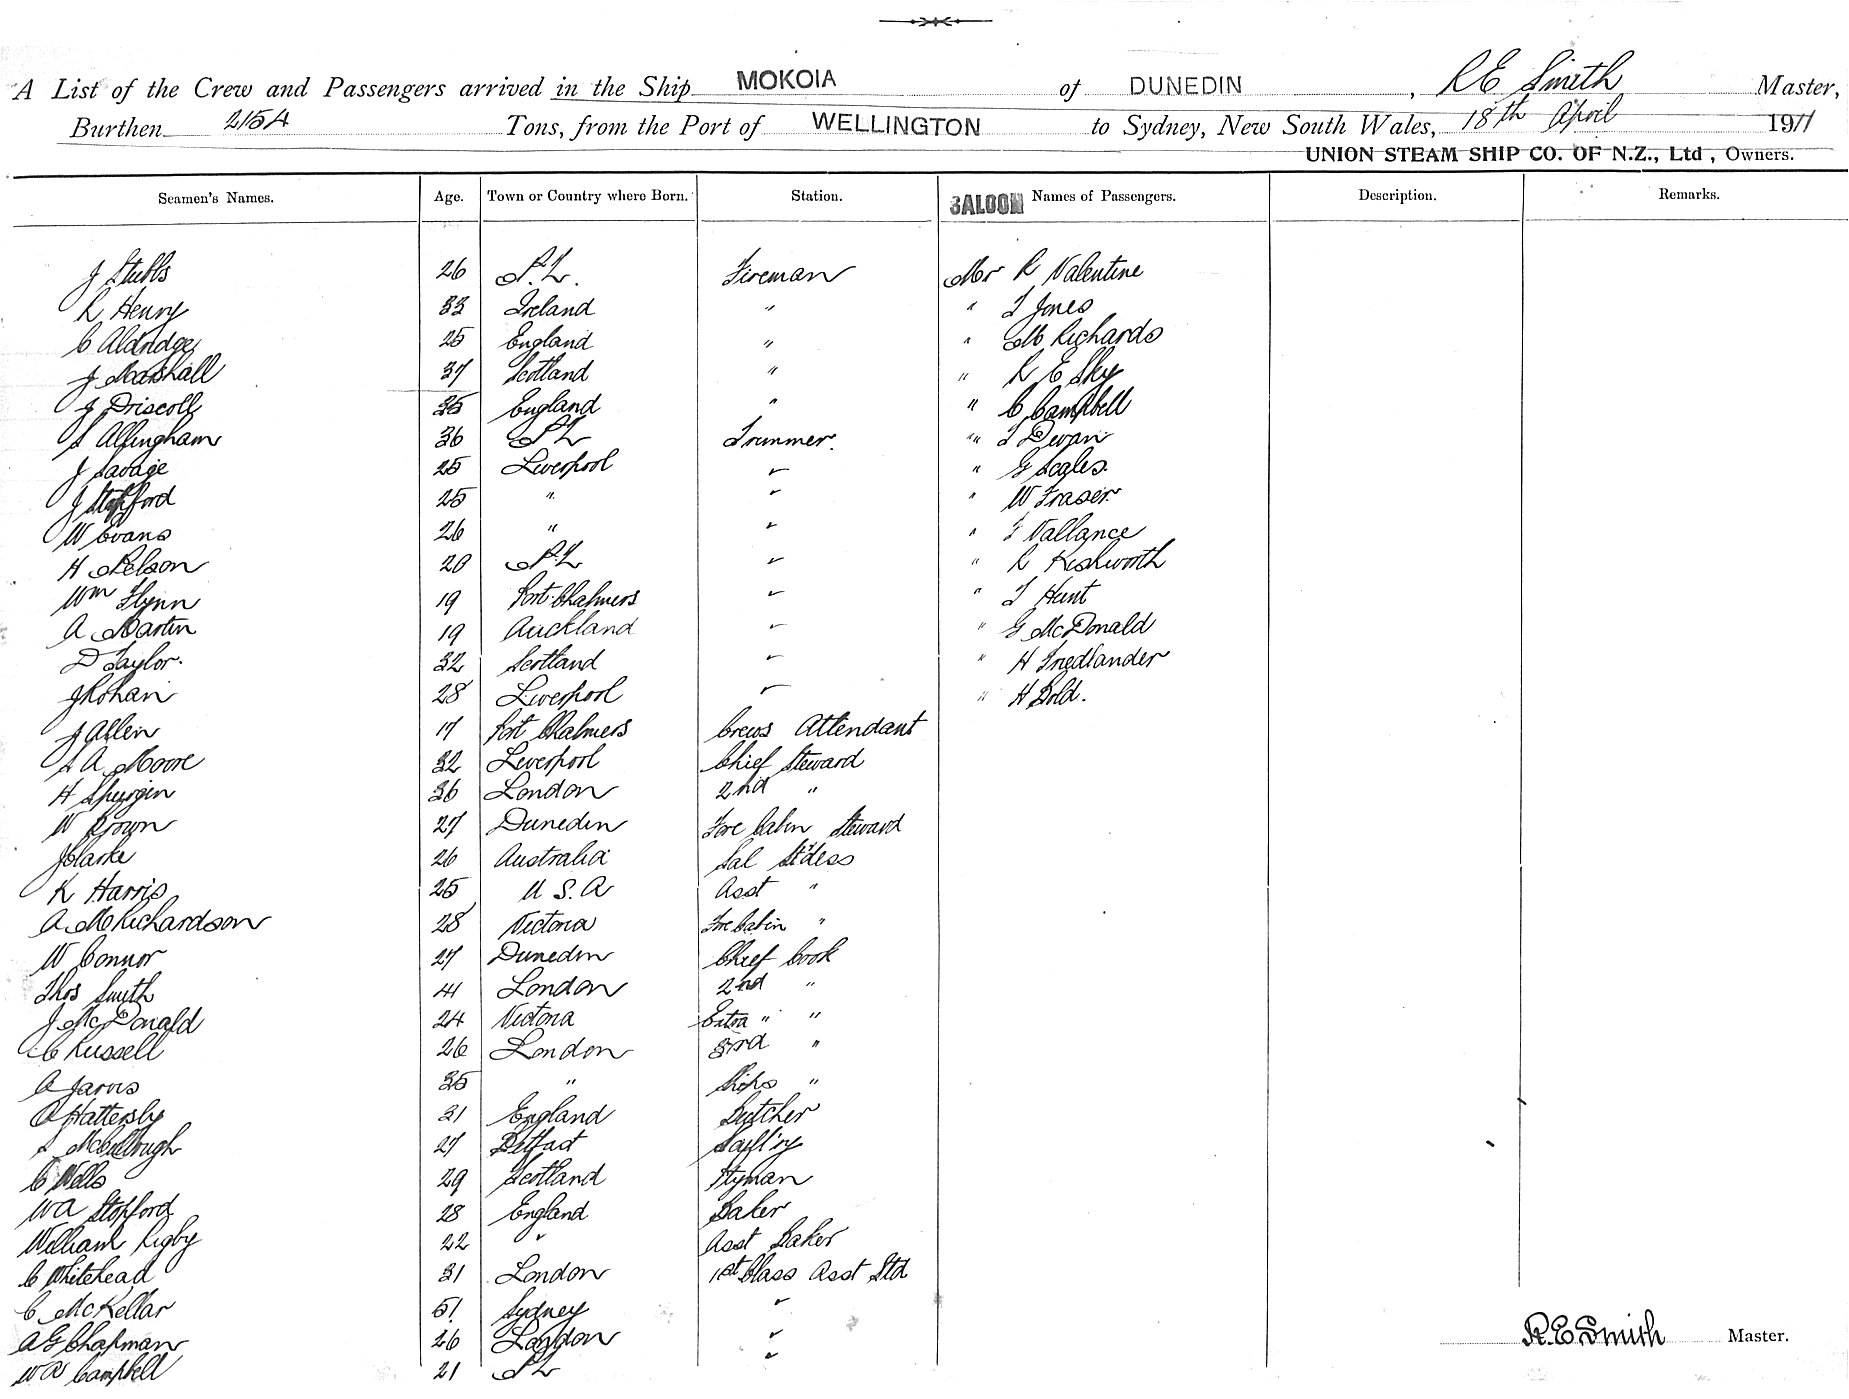 A List of the Crew and Passengers arrived in the Ship MOKOIA of DUNEDIN, R E Smith Master,
Burthen 2154 Tons, from the Port of WELLINGTON to Sydney, New South Wales, 18th April 1911
UNION STEAM SHIP CO. OF N.Z., Ltd, Owners.
Seamen's Names. Age. Town or Country where Born. Station. SALOON Names of Passengers. Description. Remarks.
J Stubbs 26 N.Z. Fireman Mr R Valentine
R Henry 33 Ireland " " T Jones
C Aldridge 25 England " " M Richards
J Marshall 37 Scotland " " R E Sky
J Driscoll 35 England " " C Campbell
S Allingham 36 N Z Trimmer. " T Dwan
J Savage 25 Liverpool " " G Scales
J Stopford 25 " " " W Fraser
W Evans 26 " " " Vallance
H Nelson 20 N.Z " " R Rishworth
Wm Flynn 19 Port Chalmers " " T Hunt
A Martin 19 Auckland " " G McDonald
D Taylor. 32 Scotland " " H Friedlander
J Rohan 28 Liverpool " " H Bold.
J Allen 17 Port Chalmers Crews Attendant
A Moore 32 Liverpool Chief Steward
H Spurgin 36 London 2nd "
W Brown 27 Dunedin Fore Cabin Steward
J Clarke 26 Australia Sal St'dess
K Harris 25 U S A Asst "
A M Richardson 28 Victoria Fore Cabin "
W Connor 27 Dunedin Chief Cook
Thos Smith 41 London 2nd "
J McDonald 24 Victoria Extra " "
C Russell 26 London 3rd "
A Jarvis 35 " Ships "
A Hattersly 31 England Butcher
S McCullough 27 Belfast
C Wells 29 Scotland P'tryman
WA Stopford 28 England Baker
William Rigby 22 " Asst Baker
C Whitehead 31 London 1st Class Asst Std
C McKellar 51 Sydney "
A G Chapman 26 London "
W A Campbell 21 N Z "
R. E Smith Master.